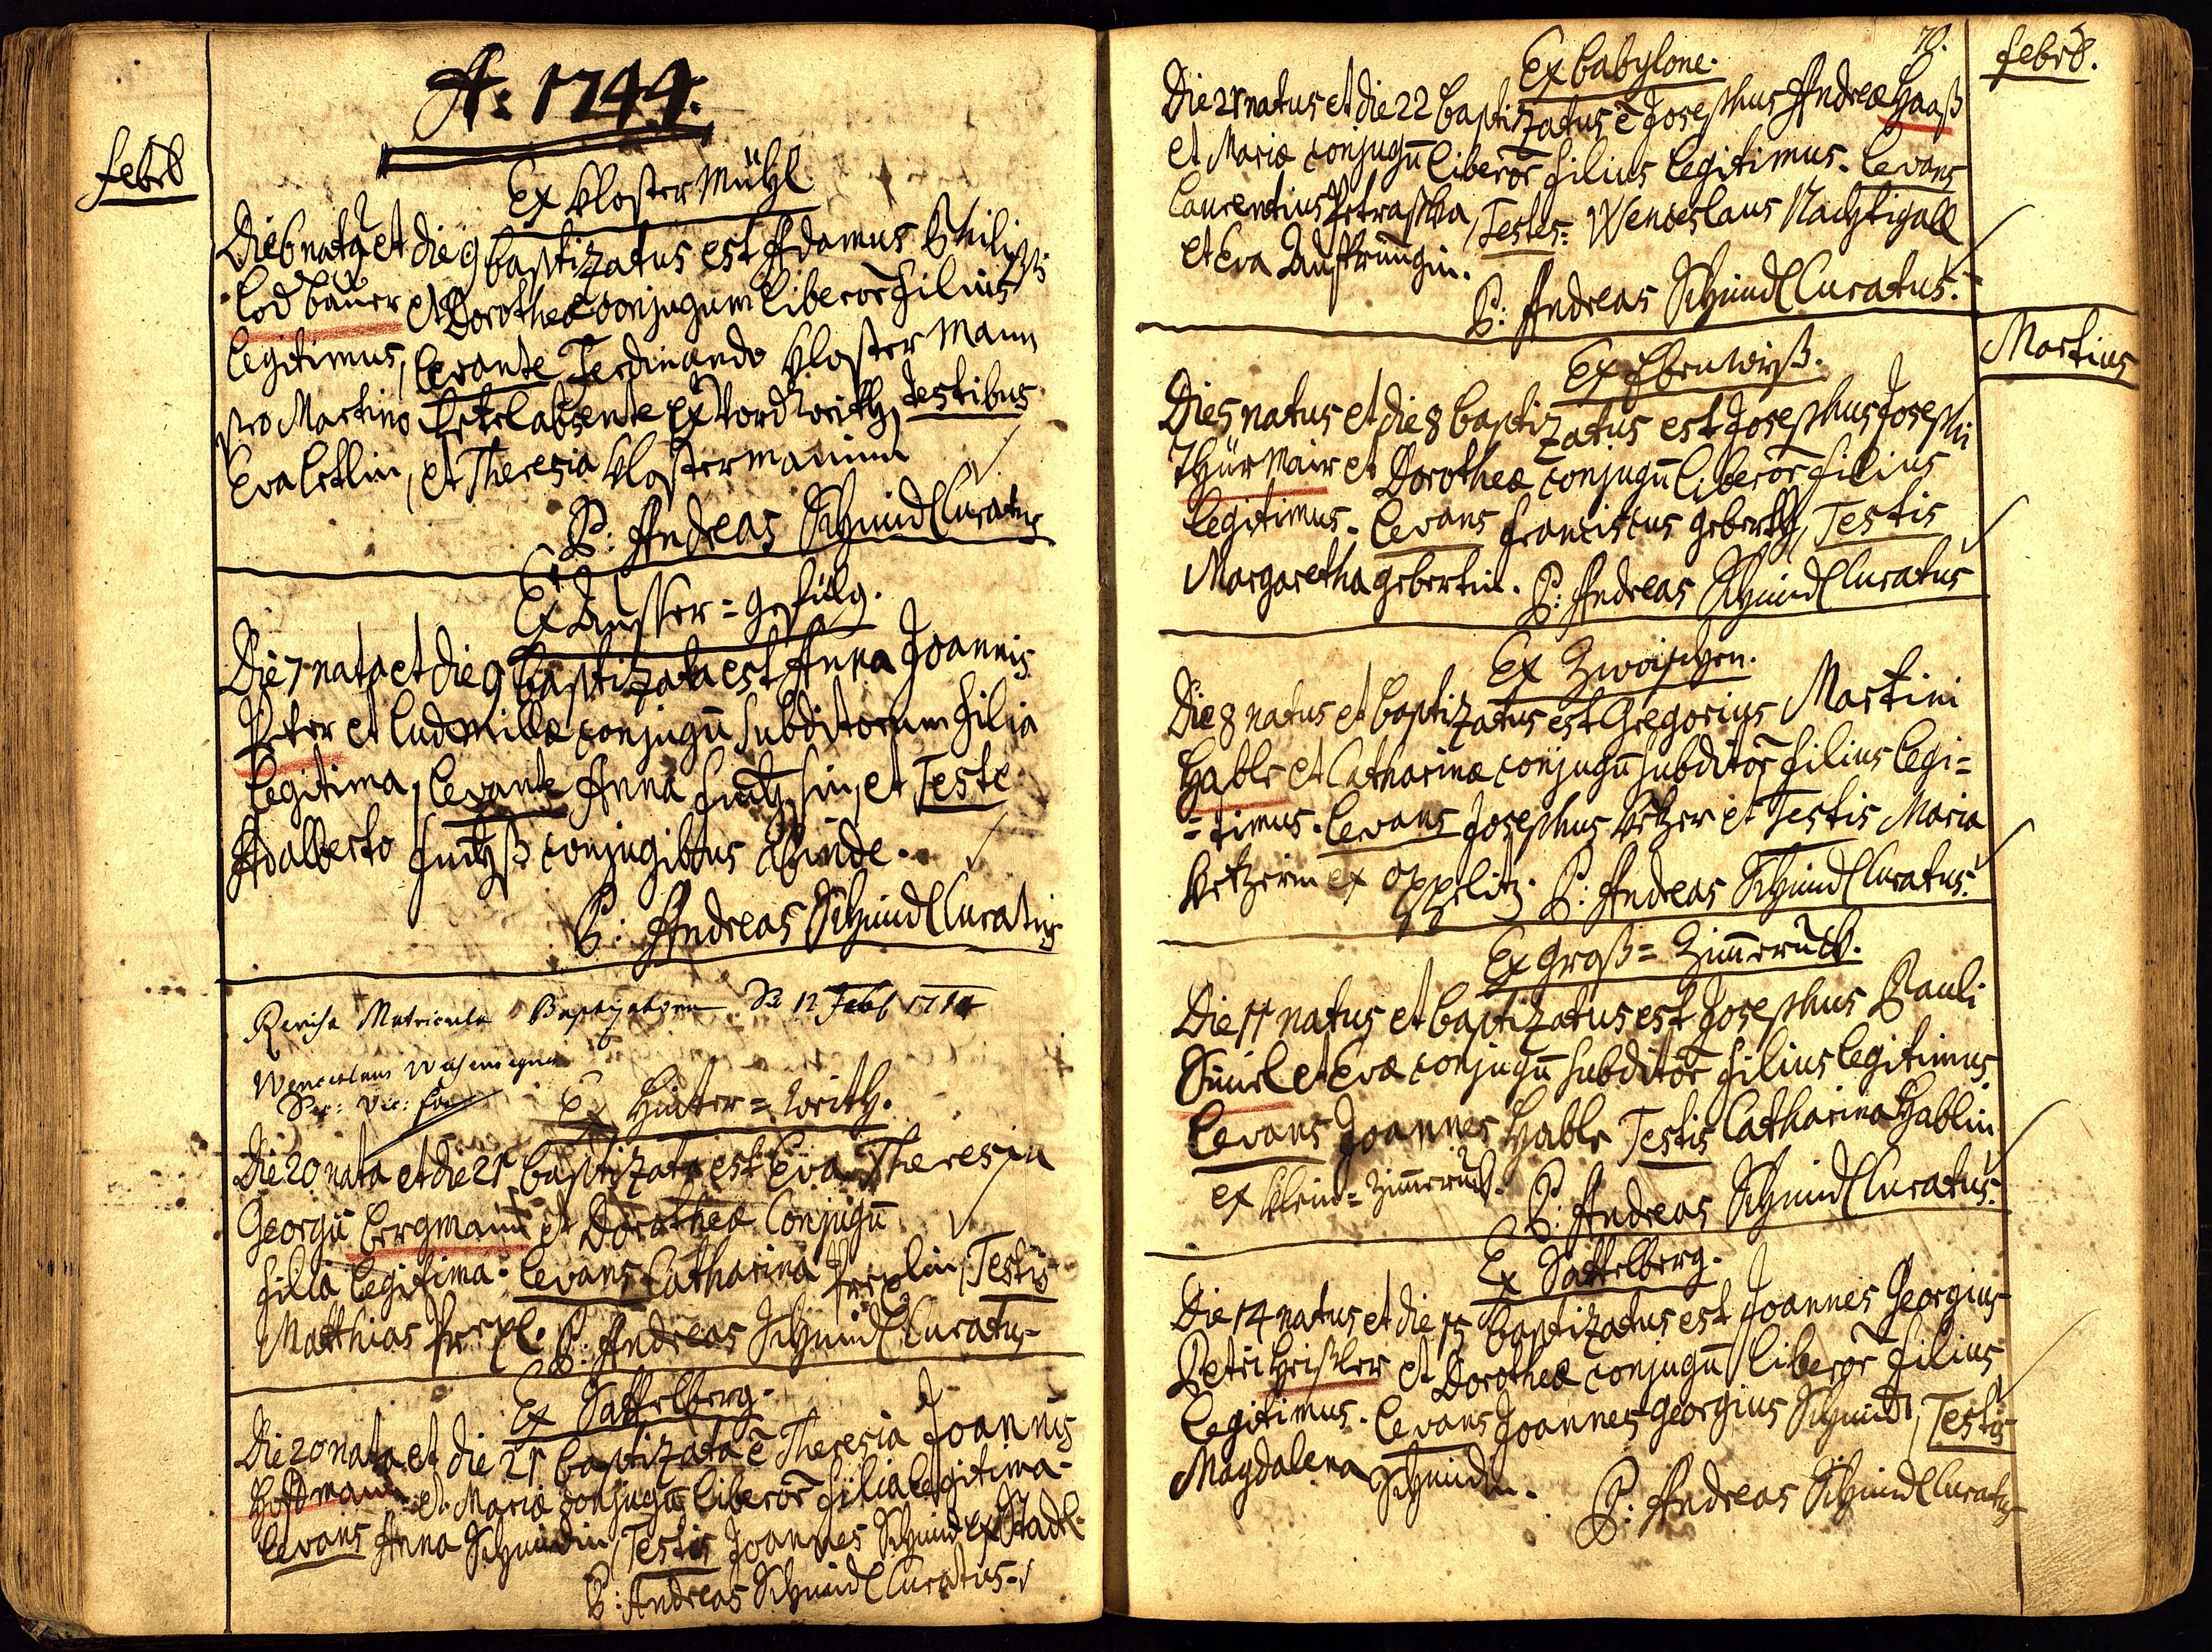 A: 1744.
Febr
Ex Kloster Mühl
Die 6 natq et die 9 baptizatus est Adamus Philippi
Lod bauer et Dorotheæ conjugum liberor filius
legitimus, levante Ferdinando Kloster Mann
pro Martino absente ex testibus
Eva et Theresia Klostermannin
P: Andreas Schmid Curatus
Ex Ausser = gefülg.
Die 7 nata et die 9 baptizata est Anna Joannis
Peter et Ludmillæ conjugū subditorum filia
legitima, levante Anna et Teste
Adalberto conjugibus abinde.
P: Andreas Schmid Curatus
Matricula Baptizatorum 12 Feb
Wenceslaus
Ex Hinter =
Die 20 nata et die 21 baptizata est Eva Theresia
Georgii Bergmann et Dorotheæ Conjugū
filia legitima. Levans Catharina Testis
Matthias P: Andreas Schmid Curatus
Ex Sattelberg.
Die 20 nata et die 21 baptizata ē Theresia Joannis
Hoffmann et Mariæ conjugū liberōr filia legitima.
Levans Anna Schmidin, Testis Joannes Schmid ex Stadl.
P: Andreas Schmid Curatus
70.
Febr.
Ex Babylone.
Die 21 natus et die 22 baptizatus ē Josephus Andreæ Haaß
et Mariæ conjugū liberōr filius legitimus. Levans
Laurentius Petraschka, Testes = Wenceslaus Nachtigall
et Eva
P: Andreas Schmid Curatus.
Martius
Ex Ebenwiß.
Die 5 natus et die 8 baptizatus est Josephus Josephi
Thürmair et Dorotheæ conjugū liberōr filius
legitimus. Levans Franciscus geberth, Testis
Margaretha gebertin. P: Andreas Schmid Curatus
Ex Zwoischen.
Die 8 natus et baptizatus est Gregorius Martini
Hable et Catharinæ conjugū subditōr filius legi=
=timus. Levans Josephus et Testis Maria
ex Oppelitz. P: Andreas Schmid Curatus.
Ex Groß = Zim̄eruck.
Die 11 natus et baptizatus est Josephus Pauli
et Evæ conjugū subditōr filius legitimus
Levans Joannes Hable Testis Catharina Hablin
ex Klein = Zim̄eruck.
P: Andreas Schmid Curatus.
Ex Sattelberg.
Die 14 natus et die 15 baptizatus est Joannes Georgius
Petri Heißler et Dorotheæ conjugū liberōr filius
legitimus. Levans Joannes Georgius Schmid, Testis
Magdalena Schmidin.
P: Andreas Schmid Curatus